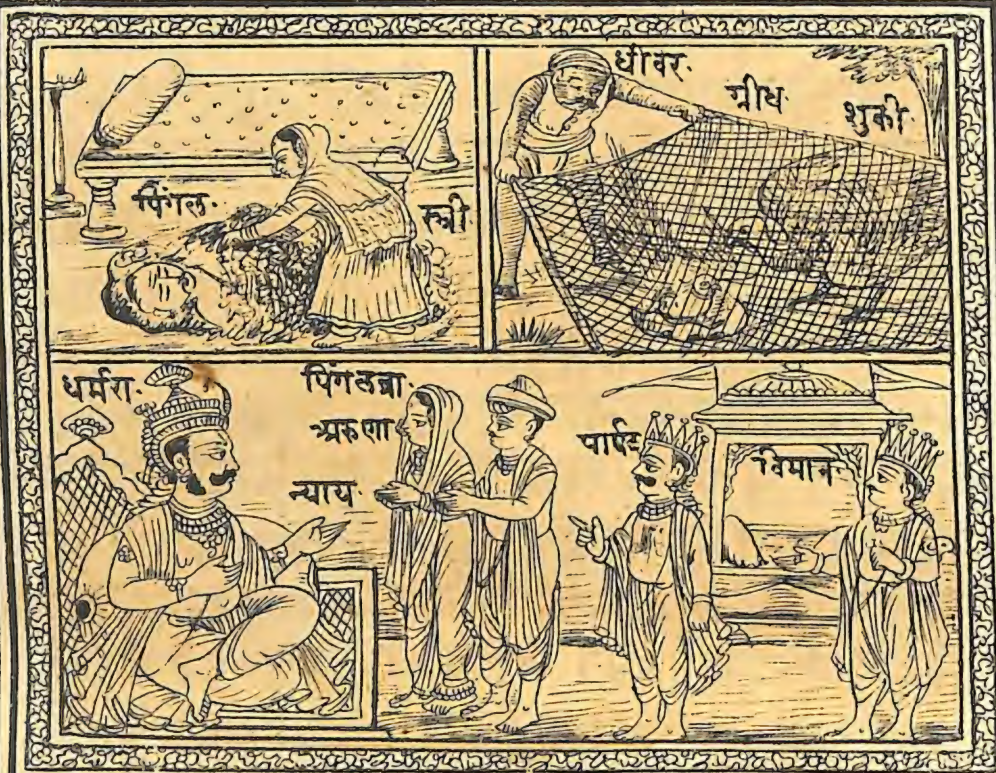 पिंगल.
स्त्री
धीवर.
ग्रीध
शुकी.
धर्मरा.
पिंगलब्रा.
अरुणा
न्याय.
पार्षद
विमान.